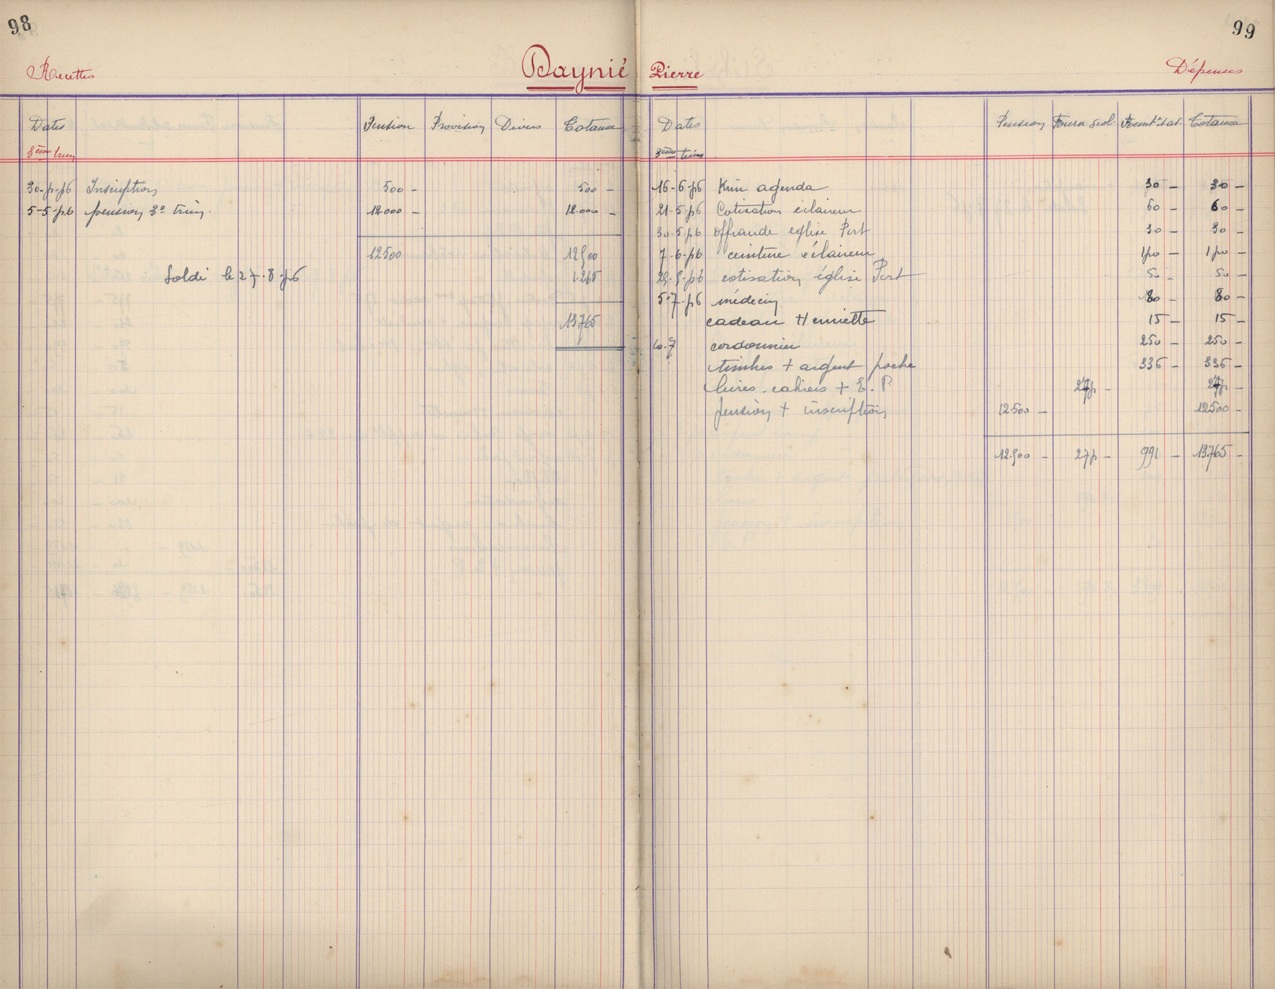 98
Recettes
Daynié
Dates Pension Provision Divers Totaux
3ème trim
30-4-56 Inscription 500 - 500 -
5-5-56 pension 3e trim. 12.000 - 12.000 -
12500 12500
Soldé le 27-8-56 1.265
13765
99
Pierre
Dépenses
Dates Pension Fourn scol. Totaux
3ème trim
16-6-56 agenda 30 - 30 -
21-5-56 Cotisation éclaireur 60 - 60 -
30-5-56 offrande eglise Port 30 - 30 -
7-6-56 ceinture éclaireur 150 - 150 -
cotisation église Port 50 - 50 -
5-7-56 médecin 80 - 80 -
cadeau Henriette 15 - 15 -
10-7 cordonnier 250 - 250 -
timbres + argent poche 336 - 336 -
livres - cahiers + E.P 275 - 275 -
pension + inscription 12500 - 12500 -
12.500 - 275 - 991 - 13765 -